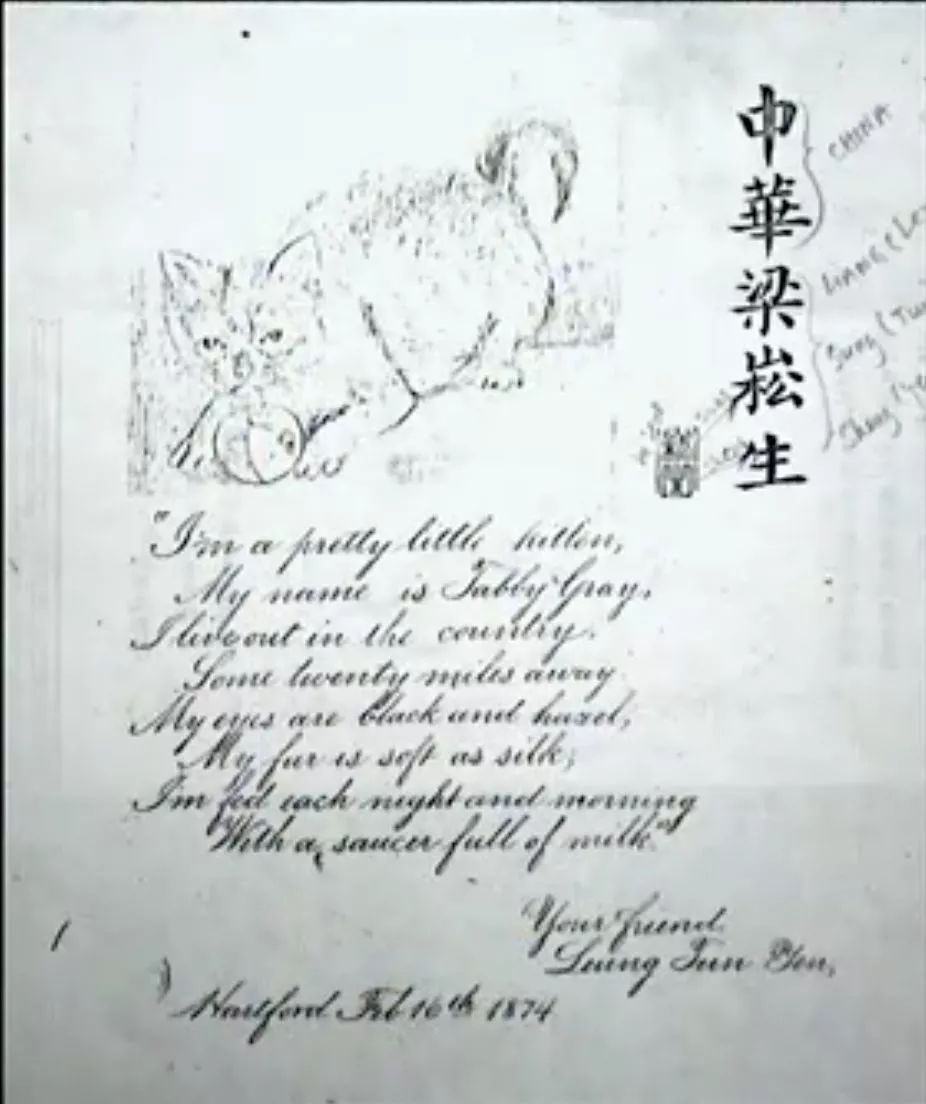 中華梁崧生
CHINA
"I'm a pretty little kitten,
My name is Tabby Gray,
I live out in the country,
Some twenty miles away.
My eyes are black and hazel,
My fur is soft as silk,
I'm fed each night and morning
With a saucer full of milk"
Your friend
Leung Tun Yen,
Hartford Feb 16th 1874